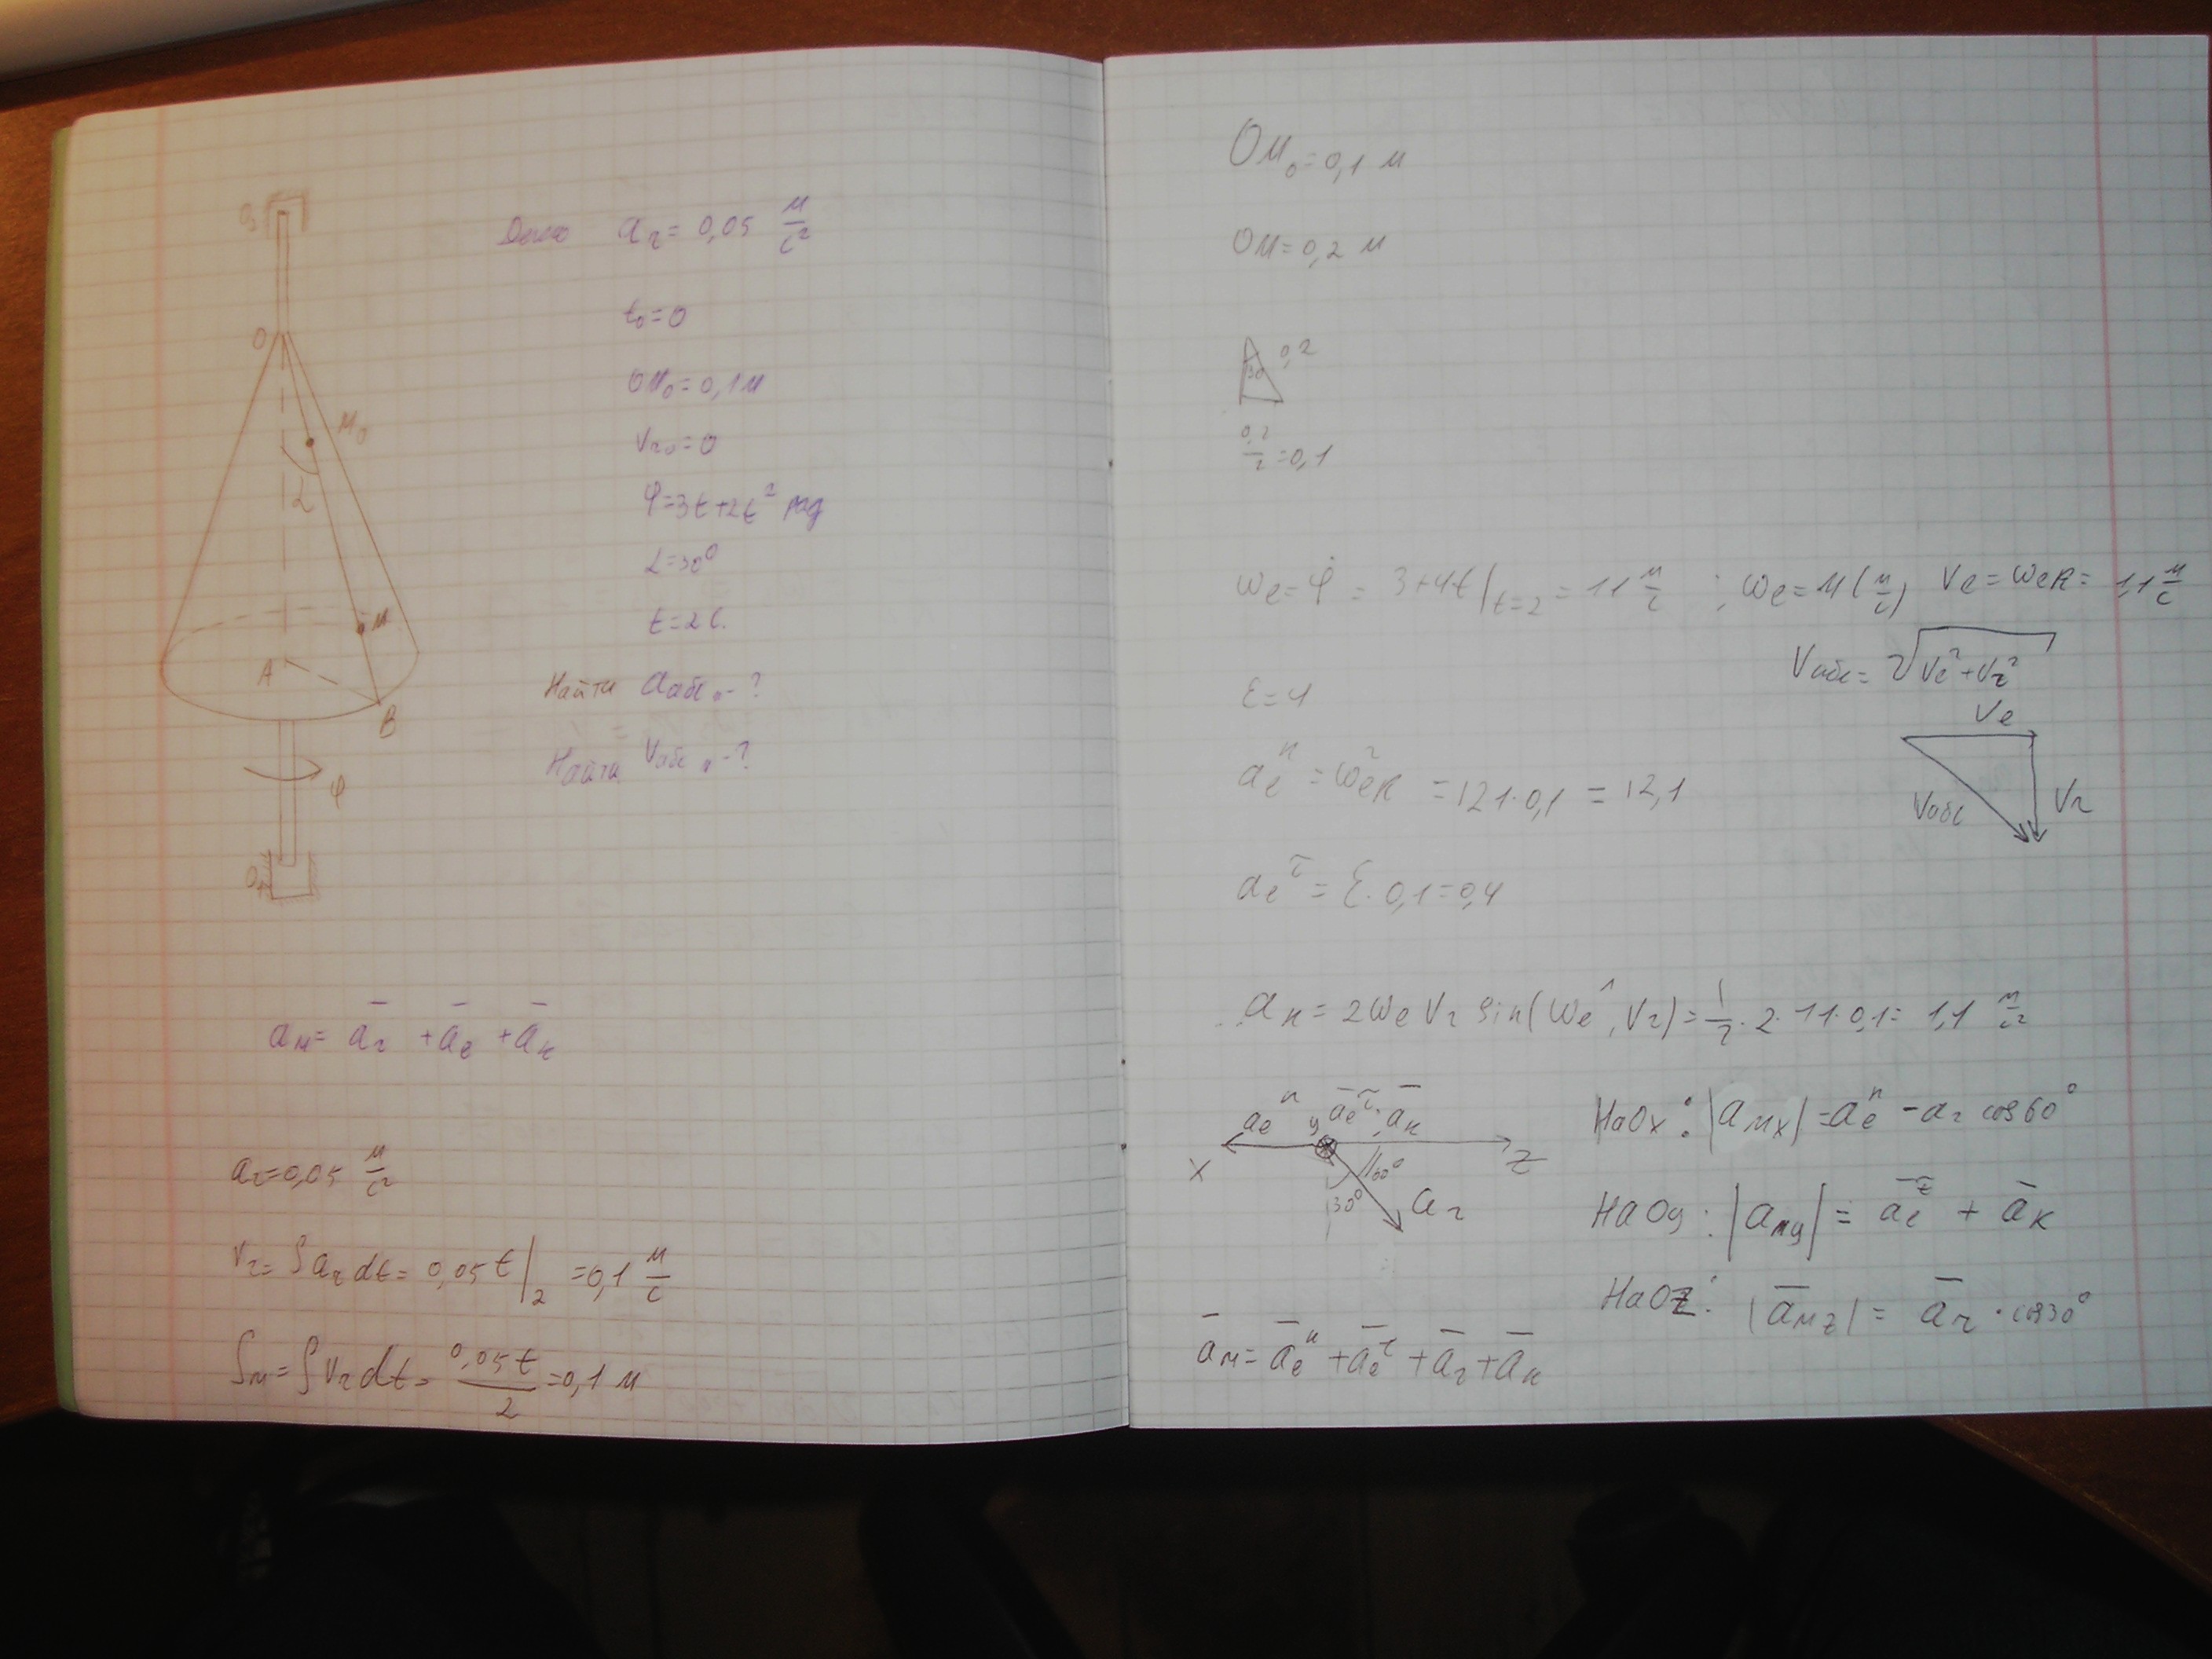 O₃
O
M₀
α
M
A
B
φ
O₁
Дано aᵣ = 0,05 м/с²
t₀ = 0
OM₀ = 0,1 м
Vᵣ₀ = 0
φ = 3t + 2t² рад
α = 30°
t = 2 с.
Найти aабс. - ?
Найти Vабс. - ?
aₘ = a̅ᵣ + a̅ₑ + a̅ₖ
aᵣ = 0,05 м/с²
Vᵣ = ∫aᵣ dt = 0,05 t |₂ = 0,1 м/с
Sₘ = ∫Vᵣ dt = 0,05 t / 2 = 0,1 м
OM₀ = 0,1 м
OM = 0,2 м
30 0,2
0,2/2 = 0,1
ωₑ = φ̇ = 3 + 4t |t=2 = 11 м/с ; ωₑ = 11 (м/с) Vₑ = ωₑR = 1,1 м/с
Vабс = √(Vₑ² + Vᵣ²)
ε = 4
Vₑ
Vабс Vᵣ
aₑⁿ = ωₑ²R = 121·0,1 = 12,1
aₑ^τ = ε·0,1 = 0,4
aₖ = 2ωₑVᵣ sin(ωₑ^,Vᵣ) = 1/2·2·11·0,1 = 1,1 м/с²
aₑⁿ y a̅ₑ^τ, a̅ₖ
x z
60°
30° aᵣ
На Ox: |aₘₓ| = aₑⁿ - aᵣ cos60°
На Oy: |aₘy| = a̅ₑ^τ + a̅ₖ
На Oz: |a̅ₘz| = a̅ᵣ · cos30°
a̅ₘ = a̅ₑⁿ + a̅ₑ^τ + a̅ᵣ + a̅ₖ